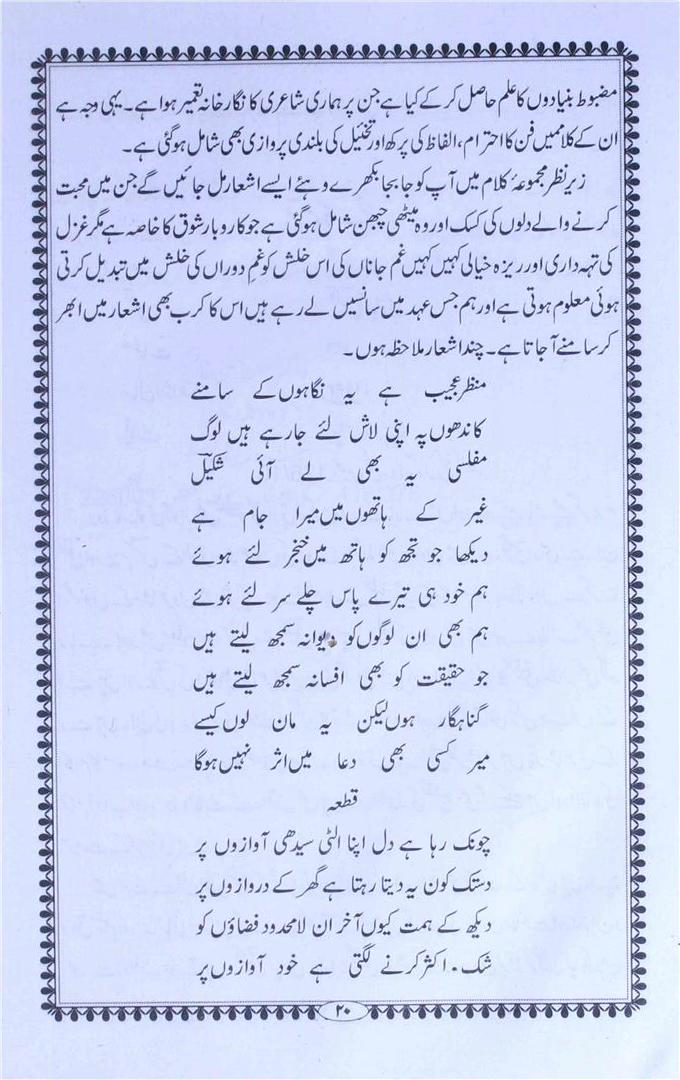 مضبوط بنیادوں کا علم حاصل کر کے کیا ہے جن پر ہماری شاعری کا نگار خانہ تعمیر ہوا ہے۔ یہی وجہ ہے
ان کے کلاممیں فن کا احترام، الفاظ کی پرکھ اور تخئیل کی بلندی پروازی بھی شامل ہوگئی ہے۔
زیر نظر مجموعۂ کلام میں آپ کو جا بجا بکھرے وہئے ایسے اشعار مل جائیں گے جن میں محبت
کرنے والے دلوں کی کسک اور وہ میٹھی چبھن شامل ہوگئی ہے جو کاروبار شوق کا خاصہ ہے مگر غزل
کی تہہ داری اور ریزہ خیالی کہیں کہیں غم جاناں کی اس خلش کو غمِ دوراں کی خلش میں تبدیل کرتی
ہوئی معلوم ہوتی ہے اور ہم جس عہد میں سانسیں لے رہے ہیں اس کا کرب بھی اشعار میں ابھر
کر سامنے آ جاتا ہے۔ چند اشعار ملاحظہ ہوں۔
منظر عجیب ہے یہ نگاہوں کے سامنے
کاندھوں پہ اپنی لاش لئے جا رہے ہیں لوگ
مفلسی یہ بھی لے آئی شکیلؔ
غیر کے ہاتھوں میں میرا جام ہے
دیکھا جو تجھ کو ہاتھ میں خنجر لئے ہوئے
ہم خود ہی تیرے پاس چلے سر لئے ہوئے
ہم بھی ان لوگوں کو دیوانہ سمجھ لیتے ہیں
جو حقیقت کو بھی افسانہ سمجھ لیتے ہیں
گناہگار ہوں لیکن یہ مان لوں کیسے
میر کسی بھی دعا میں اثر نہیں ہوگا
قطعہ
چونک رہا ہے دل اپنا الٹی سیدھی آوازوں پر
دستک کون یہ دیتا رہتا ہے گھر کے دروازوں پر
دیکھ کے ہمت کیوں آخر ان لامحدود فضاؤں کو
شک۔ اکثر کرنے لگتی ہے خود آوازوں پر
۲۰